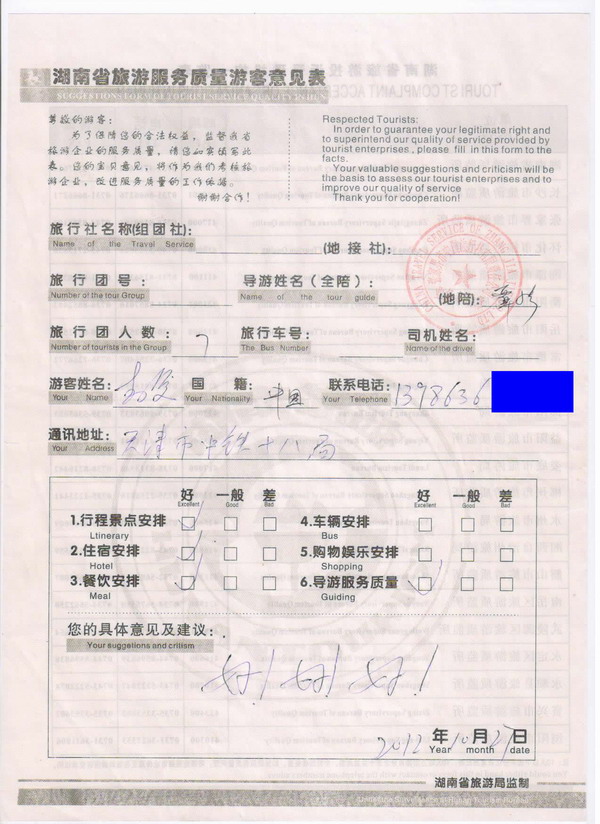 湖南省旅游服务质量游客意见表
SUGGESTIONS FORM OF TOURIST SERVICE QUALITY IN HUNAN
尊敬的游客:
为了保障您的合法权益,监督我省
旅游企业的服务质量,请您如实填写此
表。您的宝贵意见,将作为我们考核旅
游企业,改进服务质量的工作依据。
谢谢合作!
Respected Tourists:
In order to guarantee your legitimate right and
to superintend our quality of service provided by
tourist enterprises , please fill in this form to the
facts.
Your valuable suggestions and criticism will be
the basis to assess our tourist enterprises and to
improve our quality of service
Thank you for cooperation!
旅行社名称(组团社): (地接社):
Name of the Travel Service
旅行团号: 导游姓名(全陪): (地陪):
Number of the tour Group Name of the tour guide
旅行团人数: 7 旅行车号: 司机姓名:
Number of tourists in the Group The Bus Number Name of the driver
游客姓名: 国籍: 中国 联系电话: 1398636
Your Name Your Nationality Your Telephone
通讯地址: 天津市中铁十八局
Your Address
好 一般 差 好 一般 差
Excellent Good Bad Excellent Good Bad
1.行程景点安排 4.车辆安排
Ltinerary Bus
2.住宿安排 5.购物娱乐安排
Hotel Shopping
3.餐饮安排 6.导游服务质量
Meal Guiding
您的具体意见及建议:
Your suggetions and critism
好!好!好!
2012年10月27日
Year month date
湖南省旅游局监制